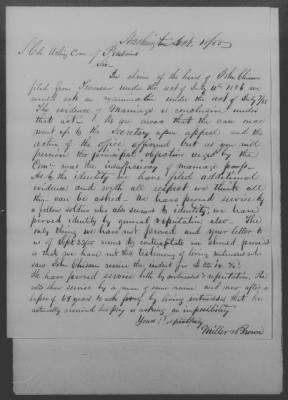 Washington Oct. 1855
Actg Com of Pensions
Sir
In the claim of the heirs of John Chism
filed from Tennessee under the act of July 4th 1836 we
would ask an examination under the act of July
The evidence of Marriage is conclusive under
that act. We are aware that the case now
went up to the Secretary upon appeal and the
action of the office affirmed but as you will
perceive the principal objection urged by the
Com was the insufficiency of marriage proof.
As to the identity we have filed additional
evidence and with all respect we think all
that can be asked. We have proved service by
a fellow soldier who also swears to identity, we have
proved identity by general reputation also. The
only thing we have not proved and your letter to
us of Sept 22/55 seems to contemplate we should prove it
is that we have not the testimony of living witnesses who
saw John Chism receive the
We have proved service both by witnesses & reputation, the
rolls show service by a man of same name and now after a
lapse of years to ask proof by living witnesses that he
actually received his pay is asking an impossibility
Yours respectfully
Miller & Brown